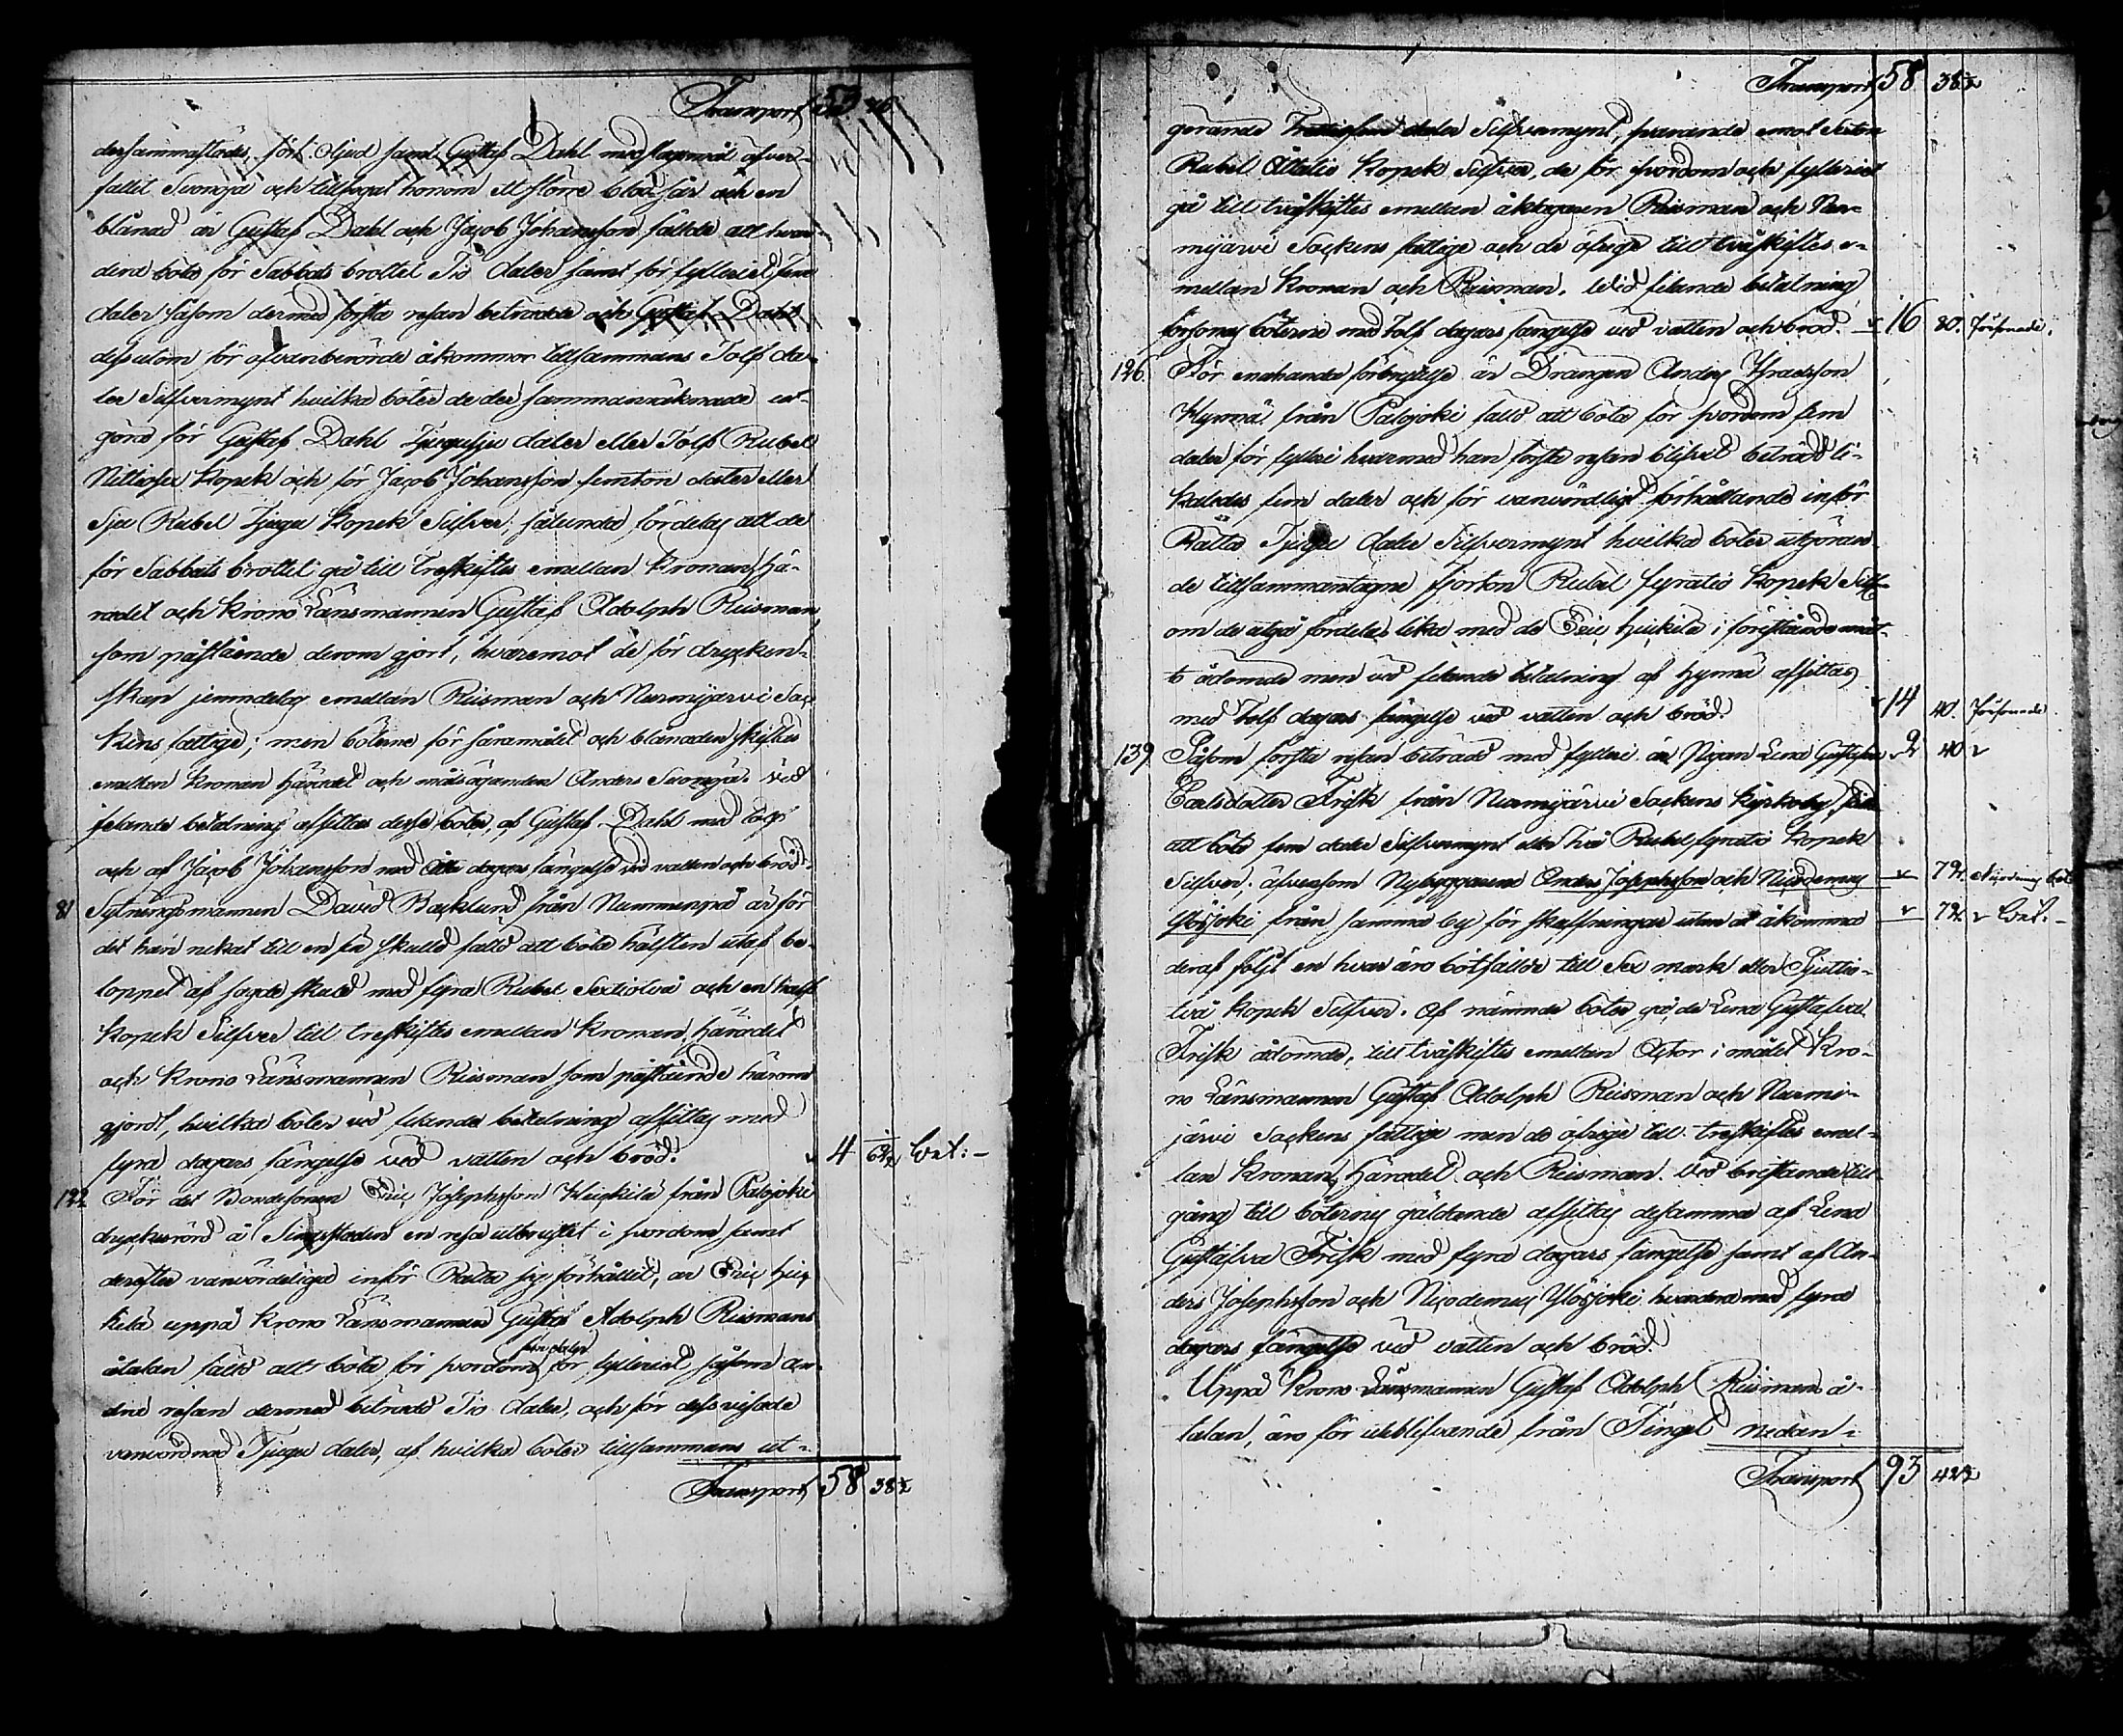 Transport 53 76
dersammastädes, fört oljud samt Gustaf Dahl med slagsmål öfver-
fallit Suonpä och tillfogat honom ett större blodsår och en
blånad är Gustaf Dahl och Jacob Johansson fällde att hvar-
dera böta för Sabbats brottet Tio daler samt för fylleriet fem
daler såsom dermed första resan beträdde och Gustaf Dahl
dessutom för ofvanberörde åkommor tillsammans Tolf da-
ler Silfvermynt hvilka böter de der sammanräknade ut-
göra för Gustaf Dahl Tjugusju daler eller Tolf Rubel
Nittiosex Kopek och för Jacob Johansson femton daler eller
Sju Rubel Tjugu Kopek Silfver; sålunda fördelas att de
för Sabbats brottet gå till treskiftes emellan Kronan, Hä-
radet och Krono Länsmannen Gustaf Adolph Reisman,
som påstående derom gjort, hvaremot de för drycken-
skap jemndelas emellan Reisman och Nurmijärvi Soc
kens fattige; men böterne för såramålet och blånaden skiftas
emellan Kronan Häradet och målsäganden Anders Suonpä. Vid
felande betalning afsittas desse böter, af Gustaf Dahl med tolf
och af Jacob Johansson med Åtta dagars fängelse vid vatten och bröd.
81 Sytningsmannen David Backlund från Nummenpä är för
det han nekat till en sin skuld fälld att böta hälften utaf be-
loppet af sagde skuld med fyra Rubel Sextiotvå och en half
Kopek Silfver till treskiftes emellan Kronan, Häradet
och Krono Länsmannen Reisman som påstående härom
gjordt, hvilka böter vid felande betalning afsittas med
fyra dagars fängelse vid vatten och bröd. 4 62½ bet: -
122 För det Bondesonen Eric Josephsson Heickilä från Palojoki
dryckesrörd å Tingsstaden en resa utbrustit i svordom samt
derefter vanvördeliga inför Rätta sig förhållit, är Eric Heic
kilä uppå Krono Länsmannen Gustaf Adolph Reismans
åtalan fälld att böta för svordom fem daler för fylleriet såsom an-
dra resan dermed beträdd Tio daler, och för dess visade
vanvördnad Tjugu daler, af hvilka böter tillsammans ut-
Transport 58 38½
Transport 58 38½
görande Trettiofem daler Silfvermynt, svarande emot Sexton
Rubel Åttatio Kopek Silfver, de för svordom och fylleriet
gå till tvåskiftes emellan åklagaren Reisman och Nur-
mijärvi Sockens fattige och de öfrige till tvåskiftes e-
mellan Kronan och Reisman. Wid felande betalning
försonas böterne med Tolf dagars fängelse vid vatten och bröd. 16 80. försonade.
126. För enahanda förbrytelse är Drängen Anders Thomasson
Hynnä från Palojoki fälld att böta för svordom fem
daler för fylleri hvarmed han första resan blifvit beträdd li-
kaledes fem daler och för vanvördligt förhållande inför
Rätta Tjugu daler Silfvermynt hvilka böter utgöran-
de tillsammantagne fjorton Rubel fyratio Kopek Silf-
om de utgå fördelas lika med de Eric Heickilä i föregående mål
ådömde men vid felande betalning af Hynnä afsittas
med Tolf dagars fängelse vid vatten och bröd. 14 40. försonade
139 Såsom första resan beträdd med fylleri är Pigan Lena Gustafva 2 40
Carlsdotter Frisk från Nurmijärvi Sockens Kyrkoby fälld
att böta fem daler Silfvermynt eller Två Rubel fyratio Kopek
Silfver. äfvensom Nybyggarene Anders Josephsson och Nicodemus 72.
Ylösjoki från samma by för skuffningar utan at åkomma 72 bet: -
deraf följt en hvar äro bötfällde till Sex mark eller Sjuttio-
två Kopek Silfver. Af nämnde böter gå, de Lena Gustafva
Frisk ådömde, till tvåskiftes emellan Actor i målet Kro-
no Länsmannen Gustaf Adolph Reisman och Nurmi-
järvi Sockens fattige men de öfrige till treskiftes emel-
lan Kronan, Häradet och Reisman. Vid bristande till-
gång till böternes gäldande afsittas desamma af Lena
Gustafva Frisk med fyra dagars fängelse samt af An-
ders Josephsson och Nicodemus Ylösjoki hvardera med fyra
dagars fängelse vid vatten och bröd.
Uppå Krono Länsmannen Gustaf Adolph Reismans å-
talan, äro för uteblifvande från Tinget nedan-
Transport 93 42½